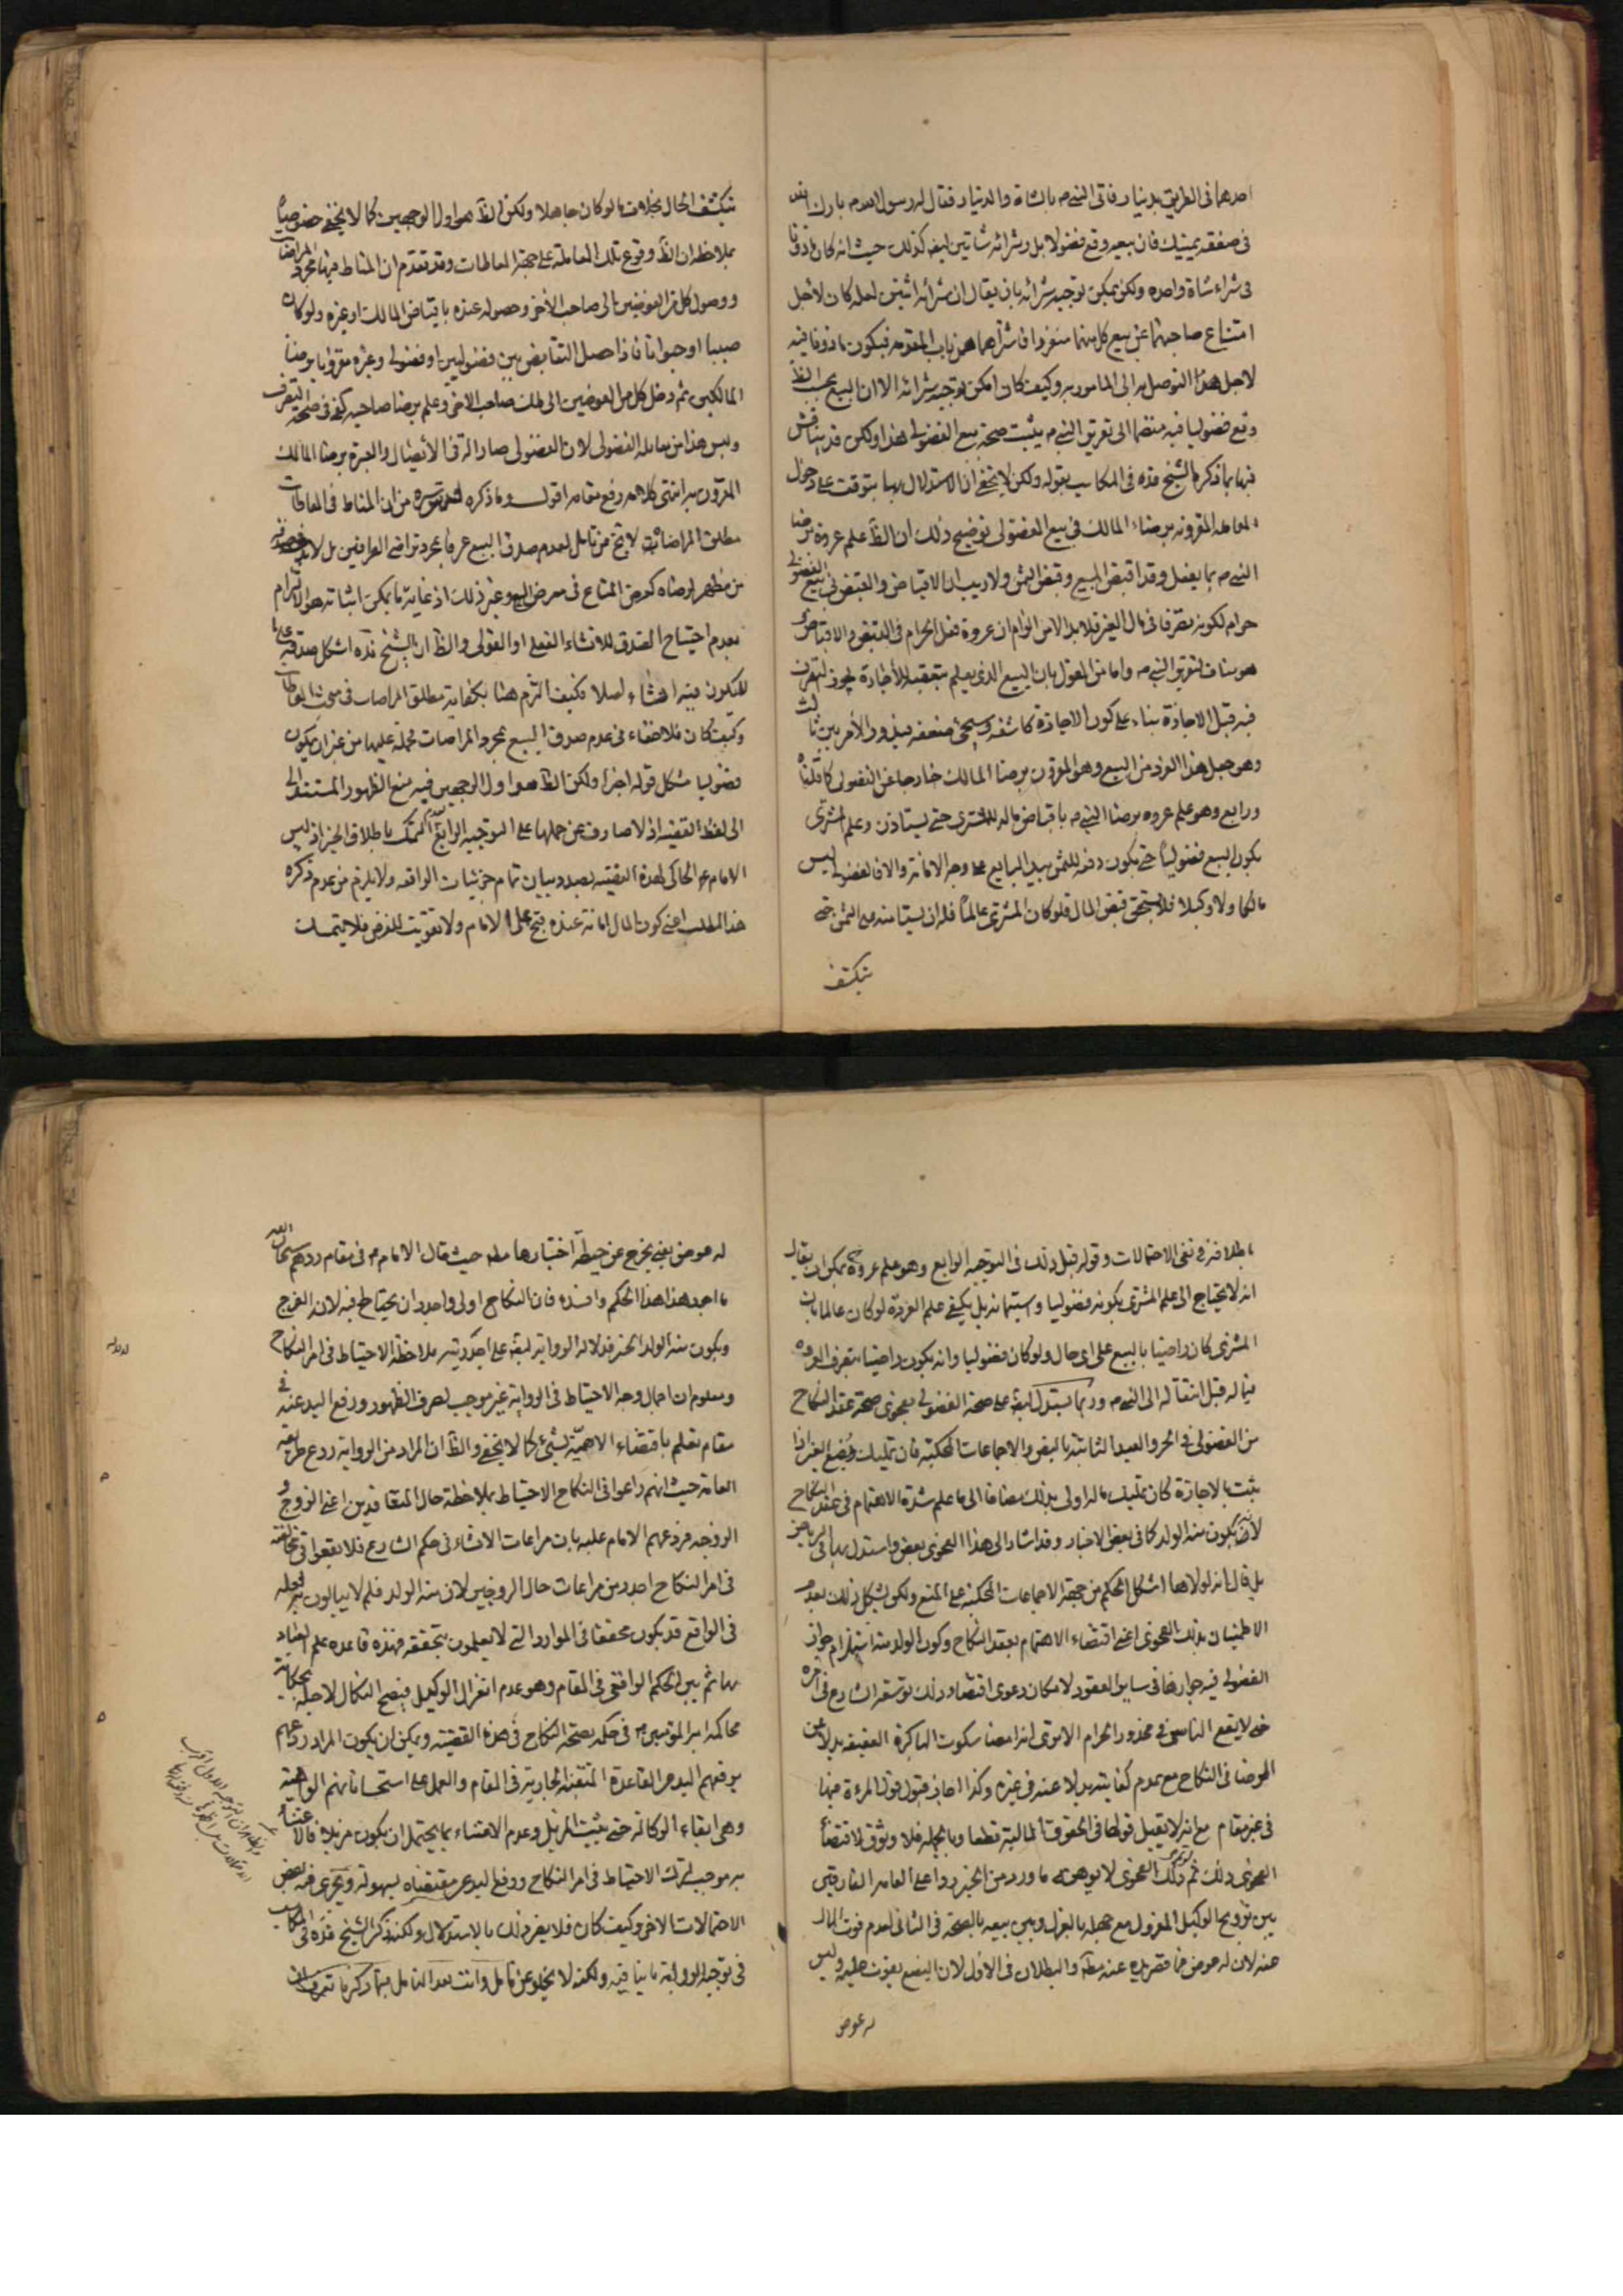 احدهما فى الطريق بدينار فاتى النبى ص بالشاة والدينار فقال له رسول الله ص بارك الله
فى صفقة يمينك فان بيعه وقع فضولا بل وشرائه شاتين ايضا كذلك حيث انه كان ماذونا
فى شراء شاة واحدة ولكن يمكن توجيه شرائه بان يقال ان شرائه اثنتين لعله كان لاجل
امتناع صاحبهما عن بيع كل منهما منفردا فشرائهما من باب المقدمه فيكون ماذونا فيه
لاجل هذا التوصل به الى المامور به وكيف كان امكن توجيه شرائه الا ان البيع بحسب الظ
وقع فضوليا فيه منضما الى تقرير النبى ص يثبت صحة بيع الفضولى هذا ولكن قد يناقش
فيها بما ذكره الشيخ قده فى المكاسب بقوله ولكن لا يخفى ان الاستدلال بها يتوقف على دخول
المعامله المقرونه برضاء المالك فى بيع الفضولى توضيح ذلك ان الظ علم عروة برضا
النبى ص بما يفعل وقد اقبض المبيع وقبض الثمن ولا ريب ان الاقباض والقبض فى بيع الفضولى
حرام لكونه تصرفا فى مال الغير فلا بد اما من التزام ان عروة فعل الحرام فى القبض والاقباض و
هو مناف لتقرير النبى ص واما من القول بان البيع الذى يعلم بتعقبه للاجازة يجوز التصرف
فيه قبل الاجازة بناء على كون الاجازة كاشفه وسيجئ ضعفه فيدور الامر بين ثالث
وهو جعل هذا الفرد من البيع وهو المقرون برضا المالك خارجا عن الفضولى كما قلناه
ورابع وهو علم عروه برضا النبى ص باقباض ماله للمشترى حتى يستاذن وعلم المشترى
بكون البيع فضوليا حتى يكون دفعه للثمن بيد البايع على وجه الامانة والا فالفضولى ليس
مالكا ولا وكيلا فلا يستحق قبض المال فلو كان المشترى عالما فله ان يستامنه على الثمن حتى
ينكشف
ينكشف الحال بخلاف ما لو كان جاهلا ولكن الظ هو اول الوجهين كما لا يخفى خصوصا
بملاحظه ان الظ وقوع تلك المعاملة على جهة المعاطات وقد تقدم ان المناط فيها مجرد المراضات
ووصول كل من العوضين الى صاحب الاخر وحصوله عنده باقباض المالك او غيره ولو كان
صبيا او حيوانا فاذا حصل التقابض بين فضوليين او فضولى وغيره مقرونا برضا
المالكين ثم وصل كل من العوضين الى ملك صاحب الاخر وعلم برضا صاحبه كفى فى صحة التصرف
وليس هذا من معاملة الفضولى لان الفضولى صار الة فى الايصال والعبرة برضا المالك
المقرون به انتهى كلامه رفع مقامه اقول وما ذكره من ان المناط فى المعاطات
مطلق المراضات لا يخ من تامل لعدم صدق البيع عرفا بمجرد تراضى الطرفين بل لا بد
من مظهر لرضاه كعرض المتاع فى معرض البيع وغير ذلك اذ غاية ما يمكن اثباته هو التزام
بعدم احتياج الصدق للانشاء الفعلى او القولى والظ ان الشيخ قده اشكل صدقه على ما
لا يكون فيه انشاء اصلا فكيف التزم هنا بكفاية مطلق المراضات فى مبحث المعاطات
وكيف كان فلا خفاء فى عدم صدق البيع بمجرد المراضات من غير ان يكون
فضوليا مشكل قوله اخيرا ولكن الظ هو اول الوجهين فيه منع الظهور المستند الى
الى لفظ القضيه اذ لا صارف عن حملها على التوجيه الرابع التمسك باطلاق الخبر اذ ليس
الامام ع الحاكى لهذه القضيه بصدد بيان تمام جزئيات الواقعه ولا يلزم من عدم ذكره
هذا المطلب اعنى كون المال امانة عنده قبح على الامام ولا تفويت للغرض فلا يتمسك
باطلاقه فى نفى الاحتمالات وقوله قبل ذلك فى التوجيه الرابع وهو علم عروة يمكن ان يقال
انه لا يحتاج الى علم المشترى بكونه فضوليا واستيمانه بل يكفى علم العروة لو كان عالما بان
المشترى كان راضيا بالبيع على اى حال ولو كان فضوليا وانه يكون راضيا بتصرف العروه
فى ماله قبل انتقاله الى النبى ص وربما يستدل ايضا على صحة الفضولى بفحوى صحة عقد النكاح
من الفضولى فى الحر والعبد الثابتة بالنص والاجماعات المحكيه فان تمليك بضع الغير اذا
يثبت بالاجازة كان تمليك ماله اولى بذلك مضافا الى ما علم شدة الاهتمام فى عقد النكاح
لانه يكون منه الولد كما فى بعض الاخبار وقد اشار الى هذا الفحوى بعض واستدل بها فى الرياض
بل قال انه لولاها اشكل الحكم من جهة الاجماعات المحكيه على المنع ولكن يشكل ذلك بعدم
الاطمينان بذلك الفحوى اعنى اقتضاء الاهتمام بعقد النكاح وكون الولد منه استلزام جواز
الفضولى فيه جوازها فى ساير العقود لامكان دعوى اقتضاء ذلك توسعة الشارع فى امره
حتى لا يقع الناس فى محذور الحرام الا ترى انه امضا سكوت الباكرة العفيفه بدلا عن
الرضا فى النكاح مع عدم كفايته بدلا عنه فى غيره وكذا اجاز قبول قول المرءة فيها
فى غير مقام مع انه لا يقبل قولها فى الحقوق المالية قطعا وبالجمله فلا وثوق لاقتضاء
الفحوى ذلك ثم ذلك الفحوى لا يوهنه ما ورد من الخبر ردا على العامه الفارقين
بين تزويج الوكيل المعزول مع جهله بالعزل وبين بيعه بالصحة فى الثانى لعدم فوت المال
عنه لان له عوض فما قصر يده عنه مطلقا والبطلان فى الاول لان البضع يفوت عليه وليس
له عوض
له عوض يعنى يخرج عن حيطة اختيارها مطلقا حيث قال الامام ع فى مقام ردهم سبحان الله
ما اجور هذا الحكم وافسده فان النكاح اولى واجدر ان يحتاط فيه لانه الفرج
ويكون منه الولد الخبر فدلالة الرواية ايضا على اجدرية ملاحظة الاحتياط فى امر النكاح
ومعلوم ان اجمال وجه الاحتياط فى الرواية غير موجب لصرف الظهور ورفع اليد عنه فى
مقام نعلم باقتضاء الاهمية لشئ كما لا يخفى والظ ان المراد من الرواية ردع طريقة
العامة حيث انهم راعوا فى النكاح الاحتياط بملاحظة حال المتعاقدين اعنى الزوج و
الزوجه فردعهم الامام عليه بان مراعات الانشاء فى حكم الشارع فلا يقعوا فى مخالفته
فى امر النكاح اجدر من مراعات حال الزوجين لان منه الولد فلم لا يبالون بجعله
فى الواقع قد يكون محققا فى الموارد التى لا يعلمون بتحققه فهذه قاعدة علم العباد
بها ثم بين الحكم الواقعى فى المقام وهو عدم انعزال الوكيل فيصح النكاح لاجله بحكاية
محاكمة امير المؤمنين ع فى حكمه بصحة النكاح فى هذه القضية ويمكن ان يكون المراد ردعهم
برفعهم اليد عن القاعدة المتقنة الجارية فى المقام والعمل على استحساناتهم الواهية
وهى ابقاء الوكالة حتى يثبت المزيل وعدم الاعتناء بما يحتمل ان يكون مزيلا فالاعتناء
به موجب لترك الاحتياط فى امر النكاح ورفع اليد عن مقتضاه بسهولة ويجرى فيه بعض
الاحتمالات الاخر وكيف كان فلا يضر ذلك بالاستدلال ولكنه ذكر الشيخ قده فى المكاسب
فى توجيه الرواية ما ينافيه ولكنه لا يخلو عن تامل وانت بعد التامل فيما ذكرنا تعرف ان